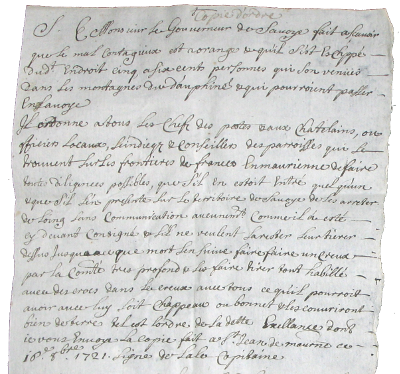 Copie d'ordre
S. E. Monsieur le Gouverneur de Savoye fait asavoir
que le mal Contagieux est a orange & qu'il s'est Echappé
du dt Endroit cinq a six cent personnes qui son venues
dans les montagnes du dauphiné & qui pourroient passer
En Savoye
Il ordonne a tous les Chefs des postes & aux Chatelains, ou
officiers Locaux, Scindics & Conseilliers des parroisses qui se
trouvent sur Les frontieres de france En maurienne de faire
toutes diligences possibles, que S'il en estoit Entré quelqu'un
& que S'il s'en presente sur Le territoire de Savoye de Les arreter
de Loing Sans Communication aucunemt Comme il a esté
cy devant Consigné & S'il ne veulent Sarester Leur tirer
dessus Jusqu'a ce que mort s'en suive faire faire un Creux
par la Comté tres profond & Les faire tirer tout habillé
avec des crocs dans Le Creux avec tous ce qu'il pourroit
avoir avec luy soit Chappeau ou bonnet & les couvriront
bien de terre tel est Lordre de La dette Exellance dont
ie vous Envoye La Copie fait a St Jean de maurne ce
16e 8bre 1721. Signé de Lale Capitaine